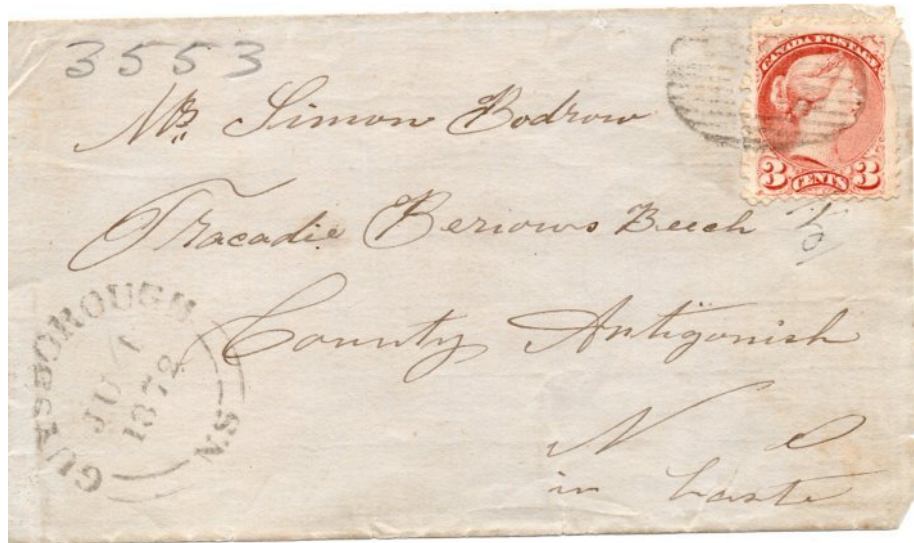 3553
CANADA POSTAGE
3 CENTS 3
Mr. Simon Bodrow
Tracadie Beriows Beech
County Antigonish
N S
in haste
GUYSBOROUGH
JU 1
1872
N.S